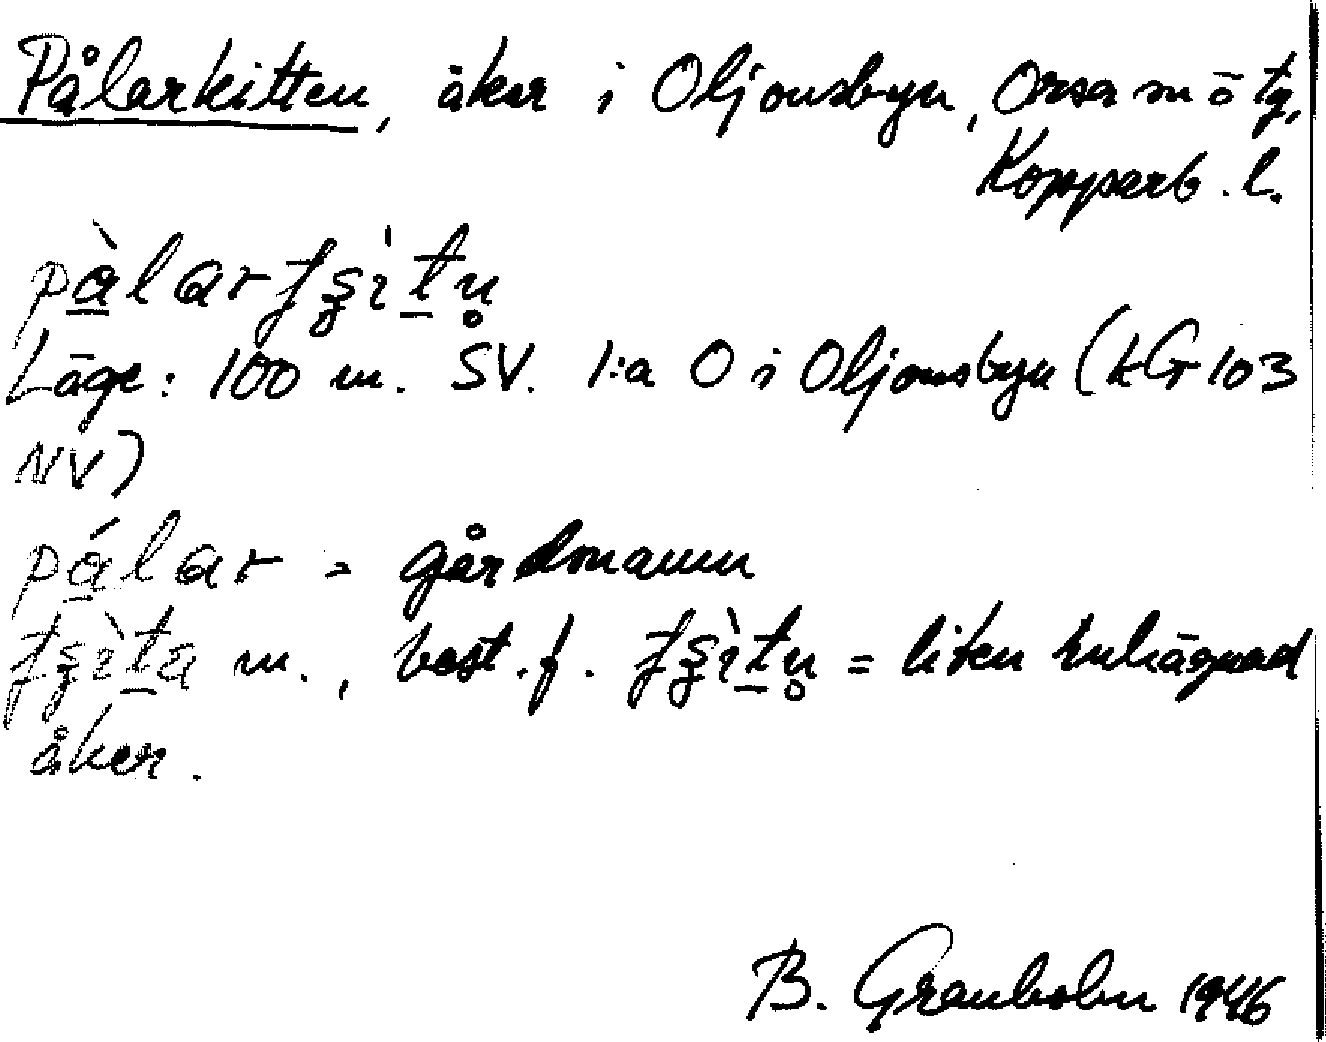 Pålarkitten, åker i Oljonsbyn, Orsa sn ö tg,
Kopparb. l.
pàlar
Läge: 100 m. SV. 1:a O i Oljonsbyn (kG 103
NV)
pálar = gårdsnamn
m., best. f. = liten inhägnad
åker.
B. Granholm 1946